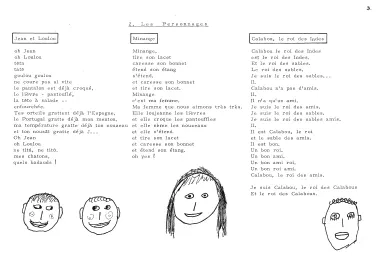 3
2. Les Personnages
Jean et Loulou
oh Jean
oh Loulou
ne cours pas si vite
le pantalon est déjà croqué,
le lièvre - pantouflé,
la tête à salade ..
Tes orteils grattent déjà l'Espagne,
le Portugal gratte déjà mon menton.
ma température gratte déjà ton anneau
et ton noeud gratte déjà ...
Oh Jean
oh Loulou.
mes chatons,
quels badauds !
Minange
Minange,
tire son lacet
caresse son bonnet
étend son étang
s'étend.
et caresse son bonnet
et tire son lacet.
Minange
c'est ma femme.
Ma femme que nous aimons très très.
Elle toujeune les lièvres
et elle croque les pantoufles
et elle aime les nouveaux
et elle s'étend.
et tire son lacet
et caresse son bonnet
et étend son étang.
oh yes !
Calabou, le roi des Indes
Calabou le roi des Indes
est le roi des Indes.
Et le roi des sables.
Le roi des sables.
Je suis le roi des sables...
Il.
Calabou n'a pas d'amis.
Il.
Il n'a qu'un ami.
Je suis le roi des amis.
Je suis le roi des sables.
Je suis le roi des sables amis.
Il.
Il est Calabou, le roi
et le sable des amis.
Il est bon.
Un bon roi.
Un bon ami.
Un bon roi.
Un bon ami.
Calabou, le roi des amis.
Je suis Calabou, le roi des Calabous
Et le roi des Calabous.